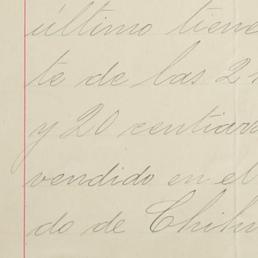 último tiene
te de las 2
y 20 centiar
vendido en el
do de Chihu